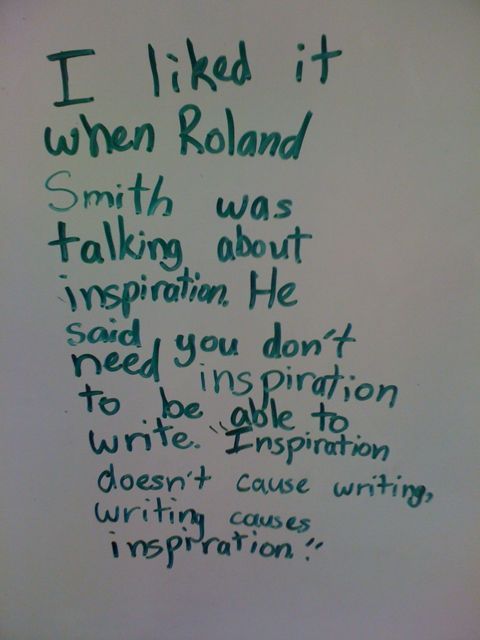 I liked it
when Roland
Smith was
talking about
inspiration. He
said you don't
need inspiration
to be able to
write. "Inspiration
doesn't cause writing,
writing causes
inspiration."